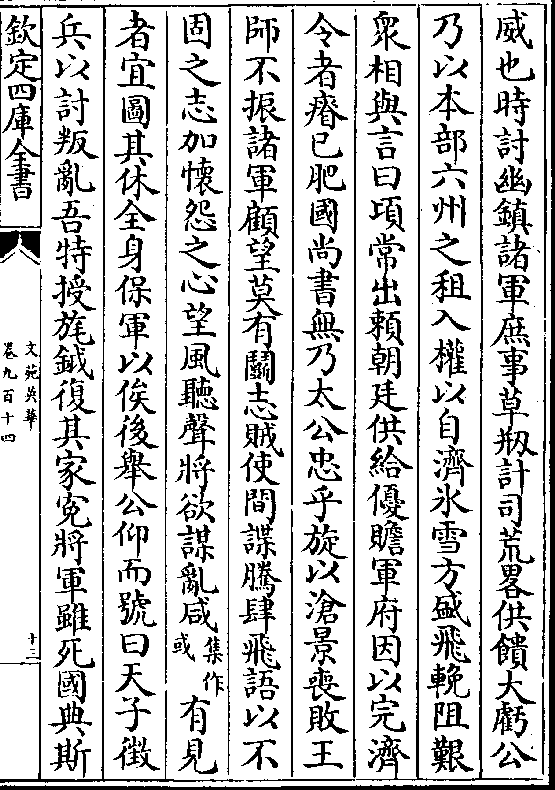 威也時討幽鎮諸軍庶事草刱計司荒畧供饋大虧公
乃以本部六州之租入權以自濟氷雪方盛飛輓阻艱
衆相與言曰項常出頼朝廷供給優贍軍府因以完濟
令者瘠已肥國尚書無乃太公忠乎旋以滄景喪敗王
師不振諸軍顧望莫有鬬志賊使間諜騰肆飛語以不
固之志加懷怨之心望風聽聲將欲謀亂咸集作或有見
者宜圖其休全身保軍以俟後舉公仰而號曰天子徵
兵以討叛亂吾特授旄鉞復其家冤將軍雖死國典斯
欽定四庫全書
文苑英華
卷九百十四
十三